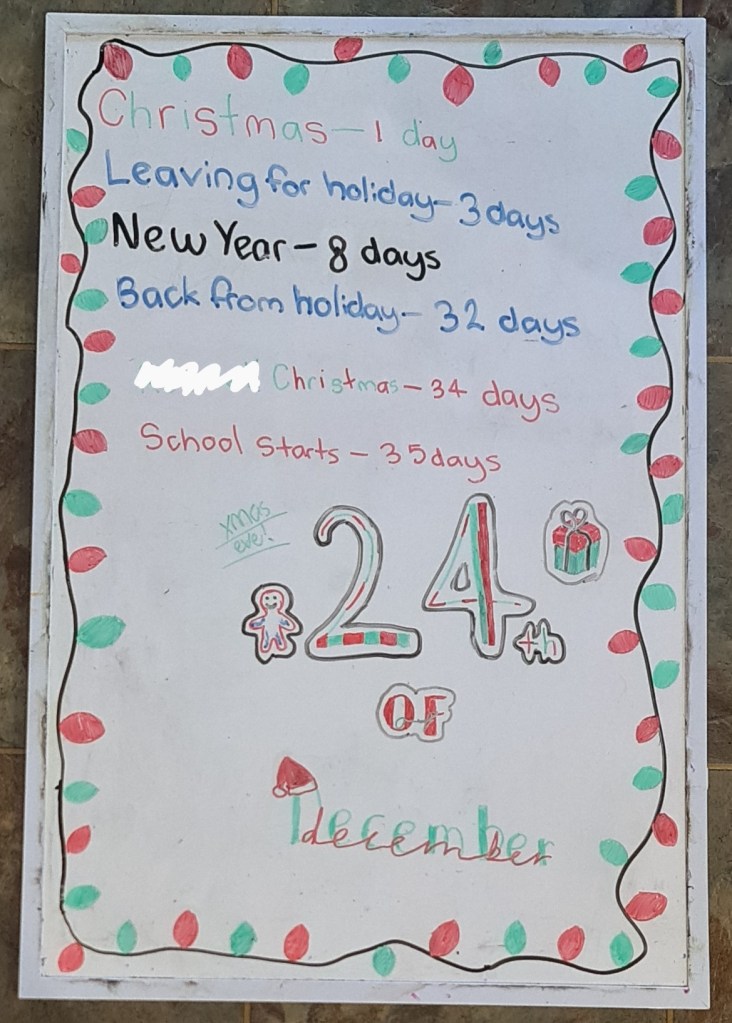 Christmas - 1 day
Leaving for holiday - 3 days
New Year - 8 days
Back from holiday - 32 days
Christmas - 34 days
School starts - 35 days
xmas
eve!
24th
OF
December
december